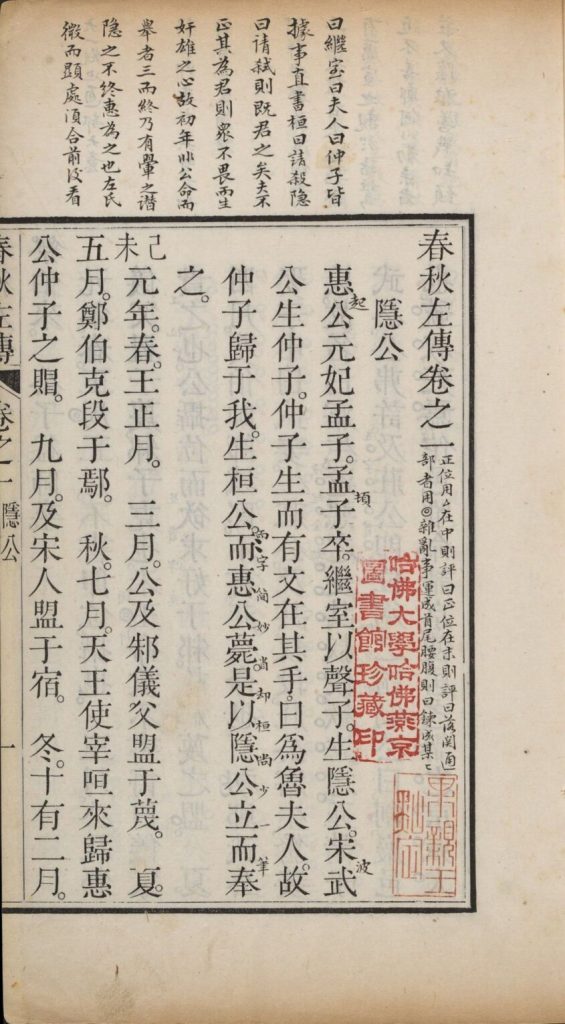 曰繼室曰夫人曰仲子皆
據事直書桓曰請殺隐
曰請弒則既君之矣夫不
正其為君則衆不畏而生
奸雄之心故初年非公命而
舉者三而終乃有翬之譖
隐之不終惠為之也左氏
微而顯處須合前後看
春秋左傳卷之一
正位用△在中則評曰正位在末則評曰落関通
部者用◎雜亂事運成首尾腰腹則曰鍊成某〻
哈佛大學哈佛燕京
圖書館珍藏印
隱公
起
頓
波
惠公元妃孟子。孟子卒。繼室以聲子。生隱公。宋武
公生仲子。仲子生而有文在其手。曰爲魯夫人。故
兩字简妙省却桓尚少筆
仲子歸于我。生桓公。而惠公薨。是以隱公立而奉
之。
己未元年。春。王正月。 三月。公及邾儀父盟于蔑。 夏。
五月。鄭伯克段于鄢。 秋。七月。天王使宰咺來歸惠
公仲子之賵。 九月。及宋人盟于宿。 冬。十有二月。
春秋左傳 卷之一 隱公 一